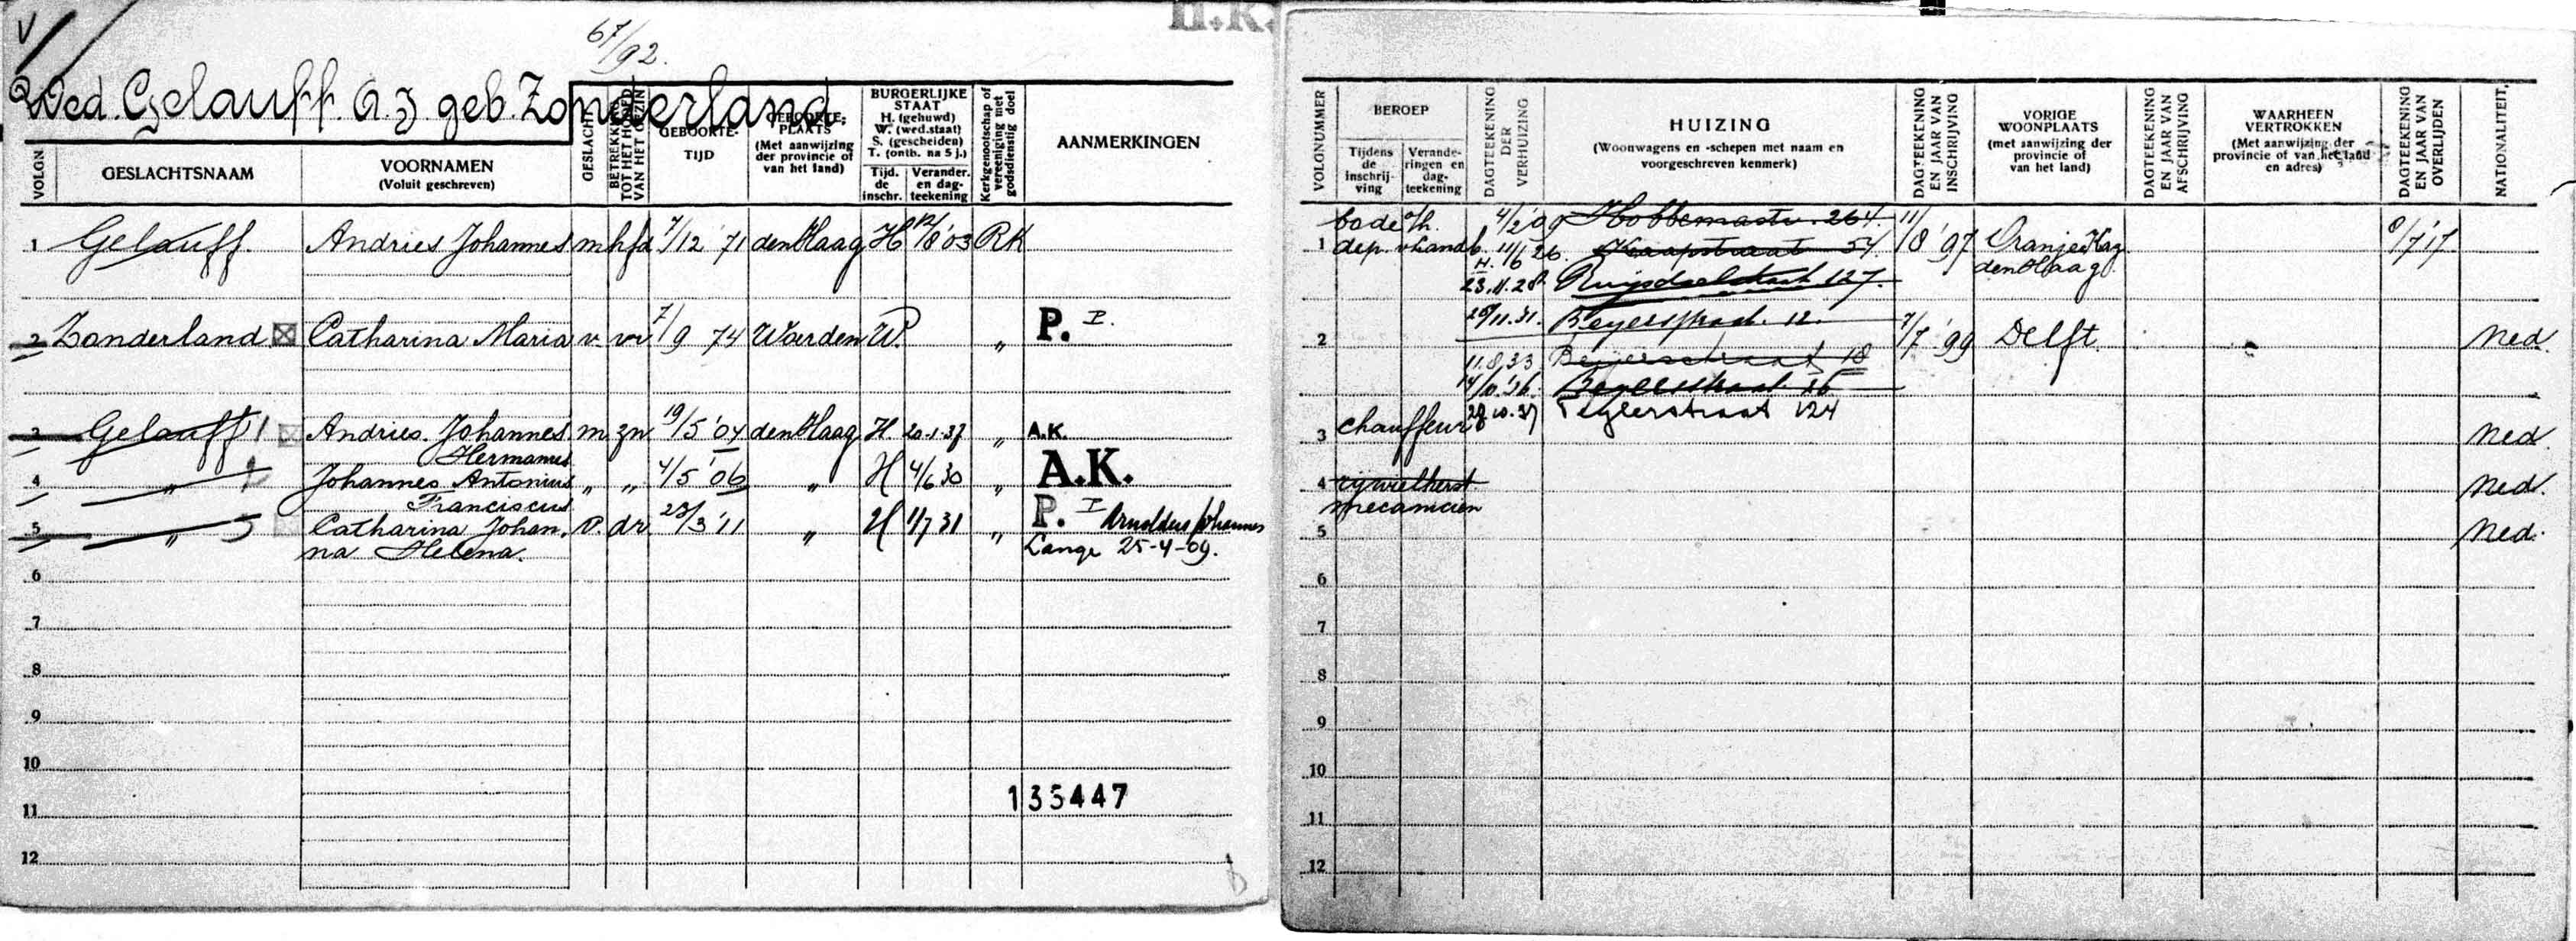 V
67/92.
H.K.
Wed. Gelauff. A.J. geb. Zonderland.
VOLGN.
GESLACHTSNAAM
VOORNAMEN
(Voluit geschreven)
GESLACHT
BETREKKING TOT HET HOOFD VAN HET GEZIN
GEBOORTE-
TIJD
GEBOORTE-
PLAATS
(Met aanwijzing
der provincie of
van het land)
BURGERLIJKE
STAAT
H. (gehuwd)
W. (wed.staat)
S. (gescheiden)
T. (ontb. na 5 j.)
Tijd.
de
inschr.
Verander.
en dag-
teekening
Kerkgenootschap of
vereeniging met
godsdienstig doel
AANMERKINGEN
1 Gelauff. Andries Johannes m hfd 7/12 '71 den Haag H 12/8 '03 RK
2 Zonderland Catharina Maria v. vr 7/9 74 Warden W. " P. I.
3 Gelauff 1 Andries Johannes m zn 19/5 '04 den Haag H 20-1-37 " A.K.
Hermanus
4 " 2 Johannes Antonius " " 4/5 '06 " H 4/6 30 " A.K.
Franciscus
5 " 3 Catharina Johan- v. dr. 23/3 '11 " H 1/7 31 " P. I Arnoldus Johannes
na Helena. Lange 25-4-09.
6
7
8
9
10
135447
11
12
VOLGNUMMER
BEROEP
Tijdens
de
inschrij-
ving
Verande-
ringen en
dag-
teekening
DAGTEEKENING
DER
VERHUIZING
HUIZING
(Woonwagens en -schepen met naam en
voorgeschreven kenmerk)
DAGTEEKENING
EN JAAR VAN
INSCHRIJVING
VORIGE
WOONPLAATS
(met aanwijzing der
provincie of
van het land)
DAGTEEKENING
EN JAAR VAN
AFSCHRIJVING
WAARHEEN
VERTROKKEN
(Met aanwijzing der
provincie of van het land
en adres)
DAGTEEKENING
EN JAAR VAN
OVERLIJDEN
NATIONALITEIT.
bode a/h. 4/2 '09 Hobbemastr. 264.
1 dep. v Landb. 11/6 26. Kaapstraat 54. 11/8 '97 Oranje Kaz. 8/7 '17
H. 23.11.28. Ruijsdaelstraat 127. den Haag.
28/11.31. Beyerstraat. 12.
2 7/7 '99 Delft. Ned.
11.8.33 Beijerstraat 18
14/10.'36. Beyerstraat 26
28.10.37 Teylerstraat 124
3 chauffeur Ned.
4 rijwielherst. Ned.
mecanicien
5 Ned.
6
7
8
9
10
11
12